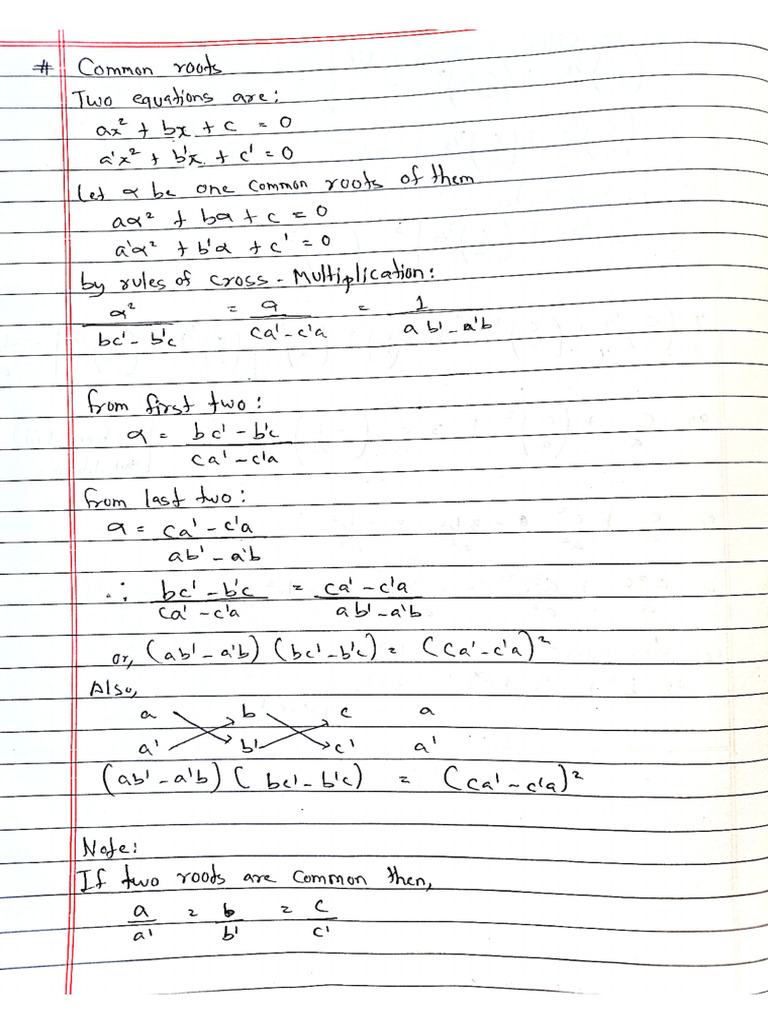 # Common roots
Two equations are:
ax² + bx + c = 0
a'x² + b'x + c' = 0
Let α be one common roots of them
aα² + bα + c = 0
a'α² + b'α + c' = 0
by rules of cross - Multiplication:
α²/(bc' - b'c) = α/(ca' - c'a) = 1/(ab' - a'b)
from first two:
α = (bc' - b'c)/(ca' - c'a)
from last two:
α = (ca' - c'a)/(ab' - a'b)
∴ (bc' - b'c)/(ca' - c'a) = (ca' - c'a)/(ab' - a'b)
or, (ab' - a'b) (bc' - b'c) = (ca' - c'a)²
Also,
a b c a
a' b' c' a'
(ab' - a'b) (bc' - b'c) = (ca' - c'a)²
Note:
If two roots are common then,
a/a' = b/b' = c/c'